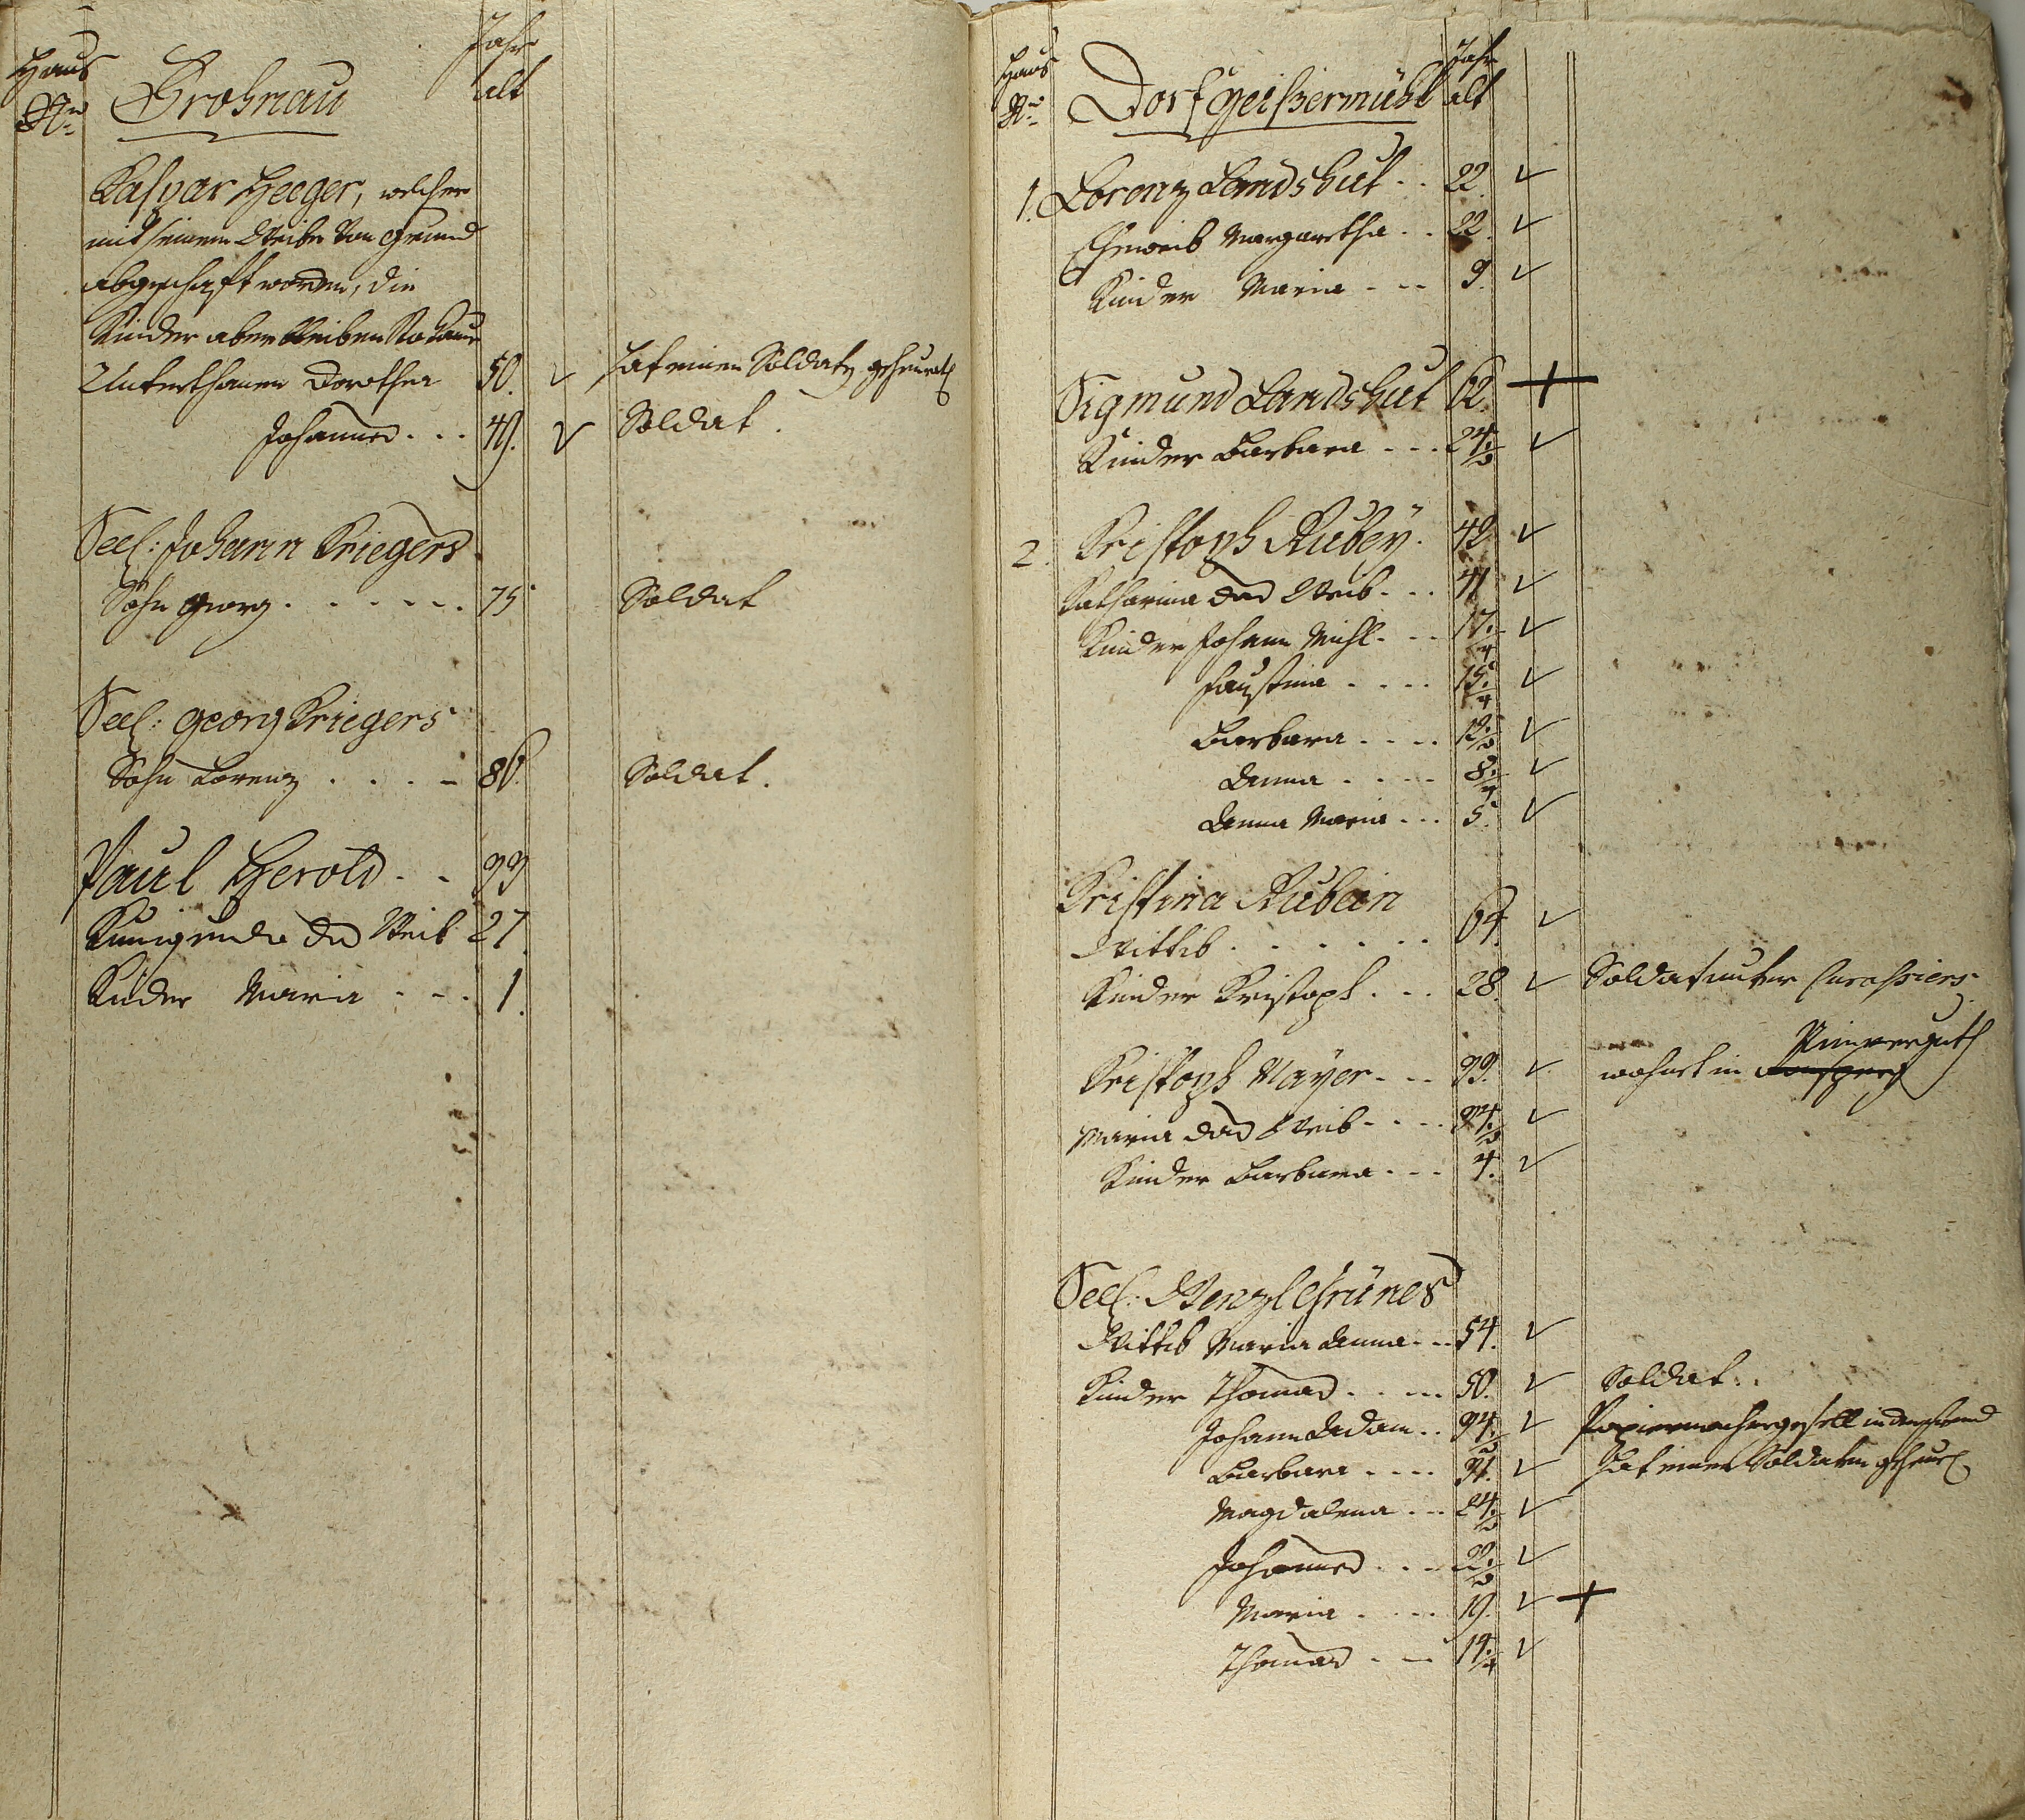 Haus
Nro
Grosnau
Jahr
alt
Kaspar Heeger, welcher
mit seinem Weibe von Grund
abgeschaft worden, die
Kinder aber bleiben
Unterthanen Dorothea 50. hat einen Soldaten geheurath
Johannes . . . 49. Soldat.
Seel: Johann Kriegers
Sohn Georg . . . . . . 75 Soldat
Seel: Georg Kriegers
Sohn Lorenz . . . . 86. Soldat.
Paul Herold . . 99
Kunigunda das Weib 27.
Kinder Maria . . . 1.
Haus
Nro
Dorf Geißermühl
Jahr
alt
1. Lorenz Landshut . . 22.
Eheweib Margaretha . . 22.
Kinder Maria . . . 9.
Sigmund Landshut 62. +
Kinder Barbara . . . 24.
2. Kristoph Rubey . 42
Katharina das Weib . . . 41
Kinder Johann Michl . . . 17.
Faustina . . . . 15.
Barbara . . . . 12.
Anna . . . . 8.
Anna Maria . . . 5.
Kristina Rubein
Wittib . . . . . . 64.
Kinder Kristoph . . . 28. Soldat unter Curassiers.
Kristoph Mayer . . . 99. wohnt in
Maria das Weib . . . . 94.
Kinder Barbara . . . 4.
Seel: Wenzl Grünes
Wittib Maria Anna . . . 54.
Kinder Thomas . . . . 50. Soldat.
Johann Adam . . 94. Papiermachergesell in der Fremd
Barbara . . . . 31. hat einen Soldaten geheur
Magdalena . . . 24.
Johannes . . . 22.
Maria . . . . 19. +
Thomas . . . 14.